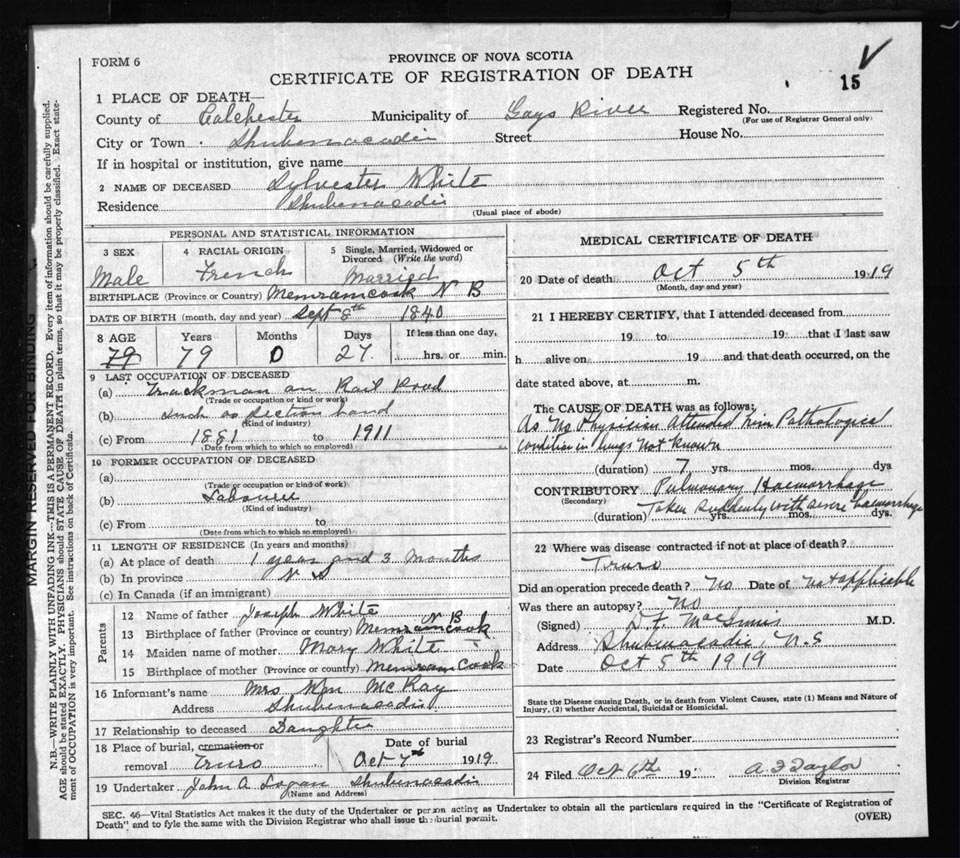 FORM 6
PROVINCE OF NOVA SCOTIA
CERTIFICATE OF REGISTRATION OF DEATH
15
1 PLACE OF DEATH—
County of Colchester Municipality of Gays River Registered No.
(For use of Registrar General only)
City or Town Shubenacadie Street House No.
If in hospital or institution, give name
2 NAME OF DECEASED Sylvester White
Residence Shubenacadie
(Usual place of abode)
PERSONAL AND STATISTICAL INFORMATION
3 SEX 4 RACIAL ORIGIN 5 Single, Married, Widowed or Divorced (Write the word)
Male French Married
BIRTHPLACE (Province or Country) Memramcook N B
DATE OF BIRTH (month, day and year) Sept 8th 1840
8 AGE Years Months Days If less than one day,
79 79 0 27 hrs. or min.
9 LAST OCCUPATION OF DECEASED
(a) Trackman on Rail Road
(Trade or occupation or kind or work)
(b) Such as Section hand
(Kind of industry)
(c) From 1881 to 1911
(Date from which to which so employed)
10 FORMER OCCUPATION OF DECEASED
(a)
(Trade or occupation or kind of work)
(b) Labourer
(Kind of industry)
(c) From to
(Date from which to which so employed)
11 LENGTH OF RESIDENCE (In years and months)
(a) At place of death 1 year and 3 months
(b) In province N S
(c) In Canada (if an immigrant)
Parents
12 Name of father Joseph White
13 Birthplace of father (Province or country) Memramcook N B
14 Maiden name of mother Mary White
15 Birthplace of mother (Province or country) Memramcook
16 Informant's name Mrs Wm McKay
Address Shubenacadie
17 Relationship to deceased Daughter
18 Place of burial, cremation or removal Truro
Date of burial Oct 7th 1919
19 Undertaker John A Logan Shubenacadie
(Name and Address)
MEDICAL CERTIFICATE OF DEATH
20 Date of death Oct 5th 1919
(Month, day and year)
21 I HEREBY CERTIFY, that I attended deceased from
19 to 19 that I last saw
h alive on 19 and that death occurred, on the
date stated above, at m.
The CAUSE OF DEATH was as follows:
As No Physician Attended him Pathological
condition in lungs Not known
(duration) 7 yrs. mos. dys
CONTRIBUTORY Pulmonary Haemorrhage
(Secondary)
Taken Suddenly with severe haemorrhage
(duration) yrs. mos. dys.
22 Where was disease contracted if not at place of death?
Truro
Did an operation precede death? No Date of Not applicable
Was there an autopsy? No
(Signed) D F MacInnis M.D.
Address Shubenacadie N.S
Date Oct 5th 1919
State the Disease causing Death, or in death from Violent Causes, state (1) Means and Nature of
Injury, (2) whether Accidental, Suicidal or Homicidal.
23 Registrar's Record Number
24 Filed Oct 6th 19 A F Taylor
Division Registrar
SEC. 46—Vital Statistics Act makes it the duty of the Undertaker or person acting as Undertaker to obtain all the particulars required in the "Certificate of Registration of
Death" and to fyle the same with the Division Registrar who shall issue the burial permit.
(OVER)
MARGIN RESERVED FOR BINDING
N.B.—WRITE PLAINLY WITH UNFADING INK—THIS IS A PERMANENT RECORD. Every item of information should be carefully supplied.
AGE should be stated EXACTLY. PHYSICIANS should STATE CAUSE OF DEATH in plain terms, so that it may be properly classified. Exact state-
ment of OCCUPATION is very important. See instructions on back of Certificate.